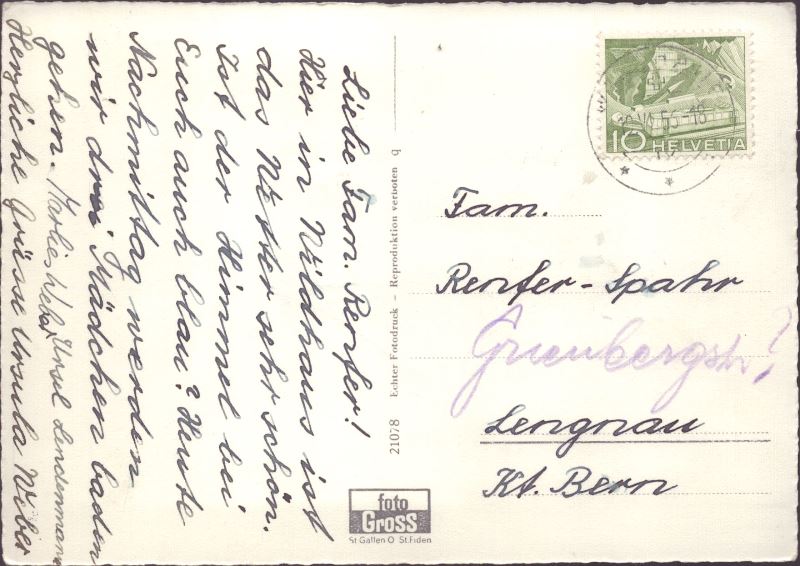 Liebe Fam. Renfer!
Hier in Wildhaus ist
das Wetter sehr schön.
Ist der Himmel bei
Euch auch blau? Heute
Nachmittag werden
wir drei Mädchen baden
gehen.
Ursel Lindenmann
Herzliche Grüsse Ursula Weber
21078 Echter Fotodruck – Reproduktion verboten q
foto
Gross
St Gallen O St.Fiden
10 HELVETIA
Fam.
Renfer-Spahr
Lengnau
Kt. Bern